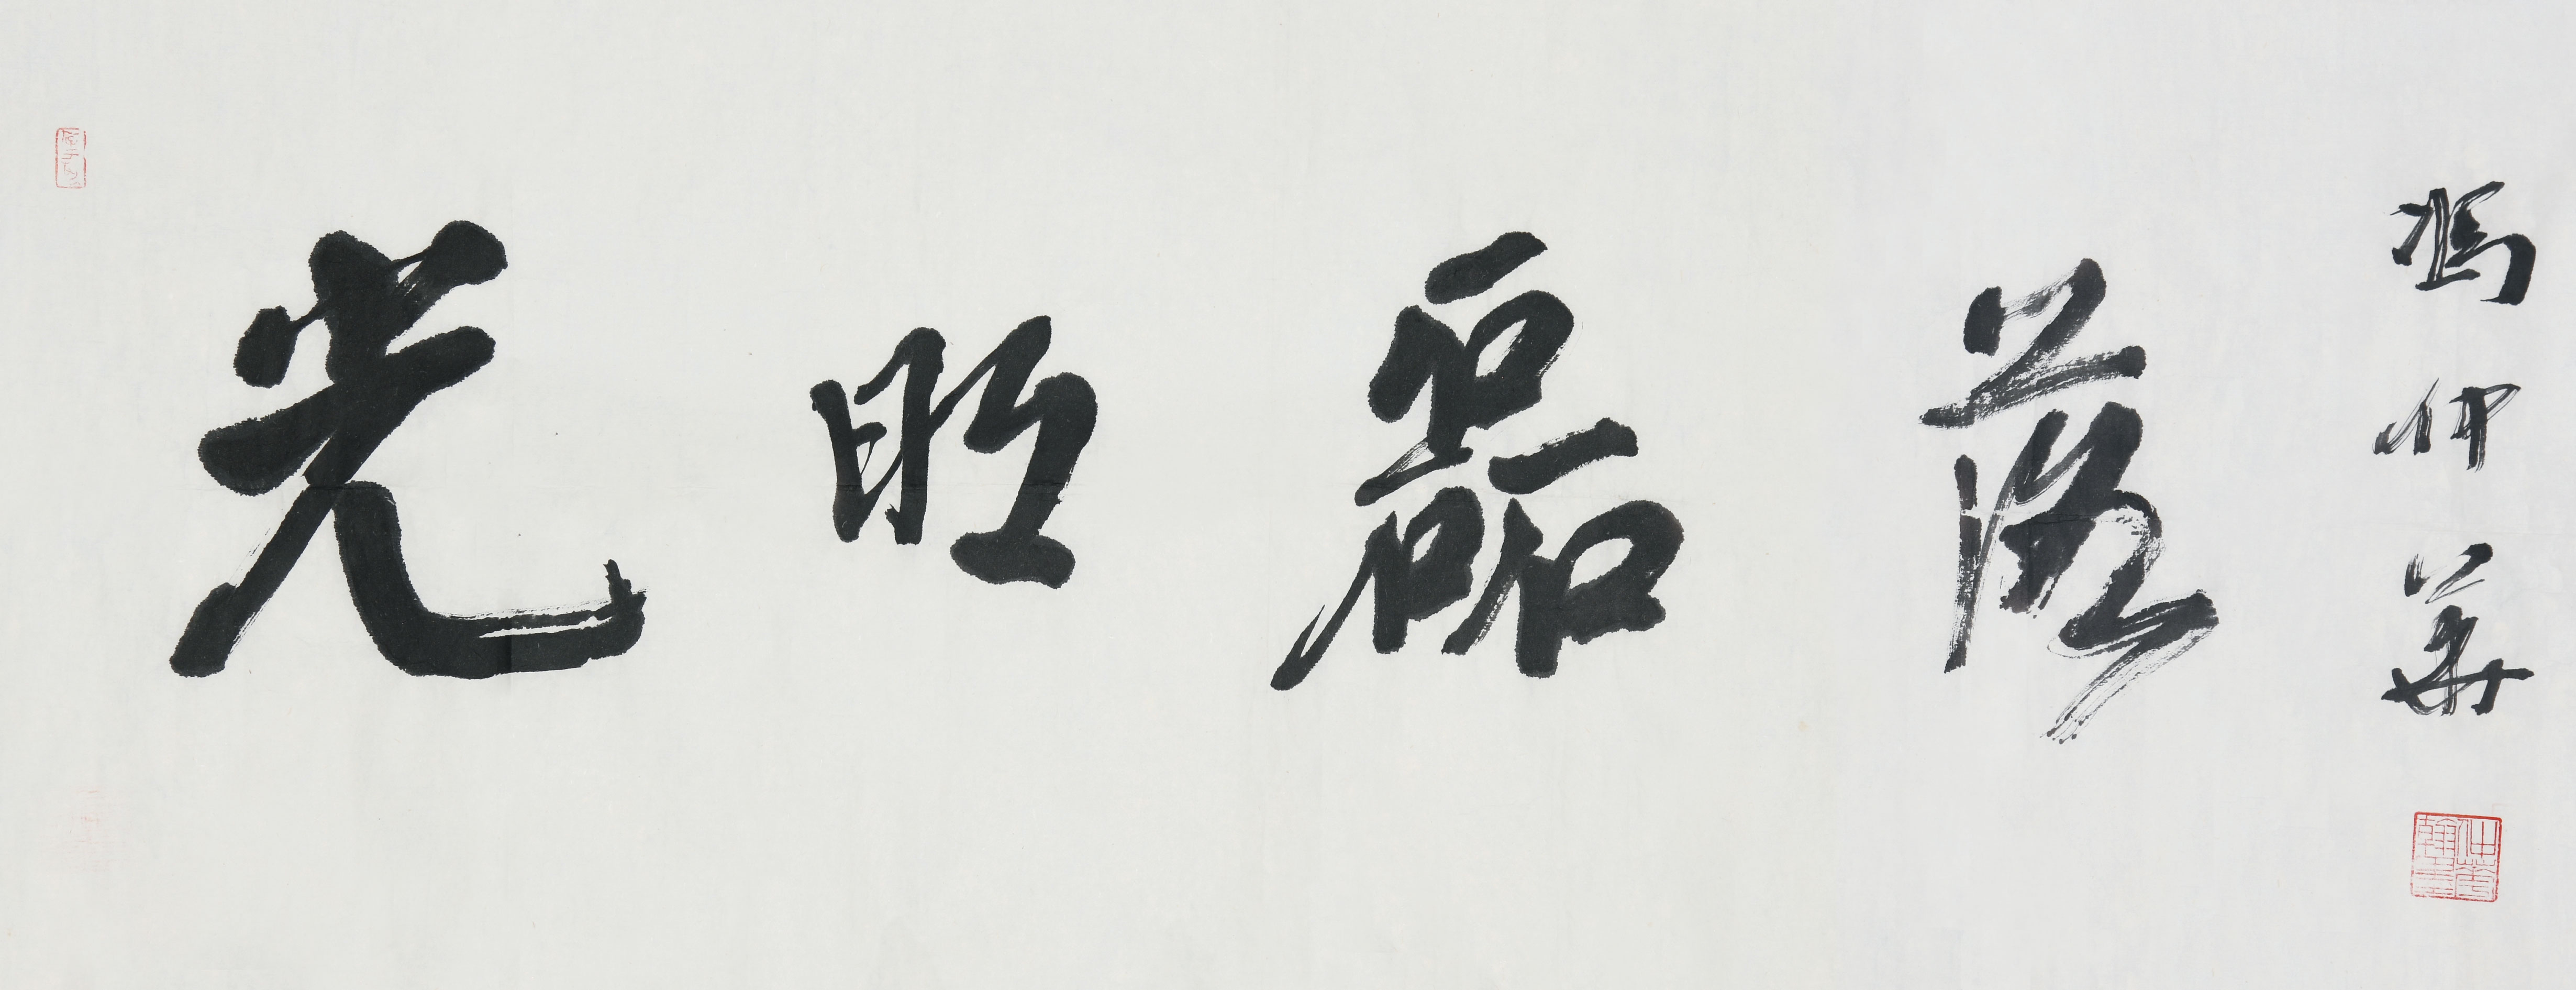 光明磊落
馮仲華